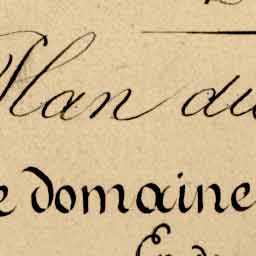 Plan du
e domaine